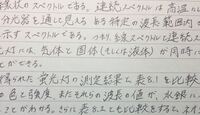 線状のスペクトルである。連続スペクトルは高温
分光器を通して見える ある特定の波長範囲内の
示すスペクトルである。つまり、線スペクトルと連続ス
光灯には、気体と固体(もしくは液体)が同時に
できる。
得られた蛍光灯の測定結果と表8.1を比較
の色と強度、またそれらの波長の値が、水銀に
ことがわかる。さらに表8.2とも比較をすると、ネオ